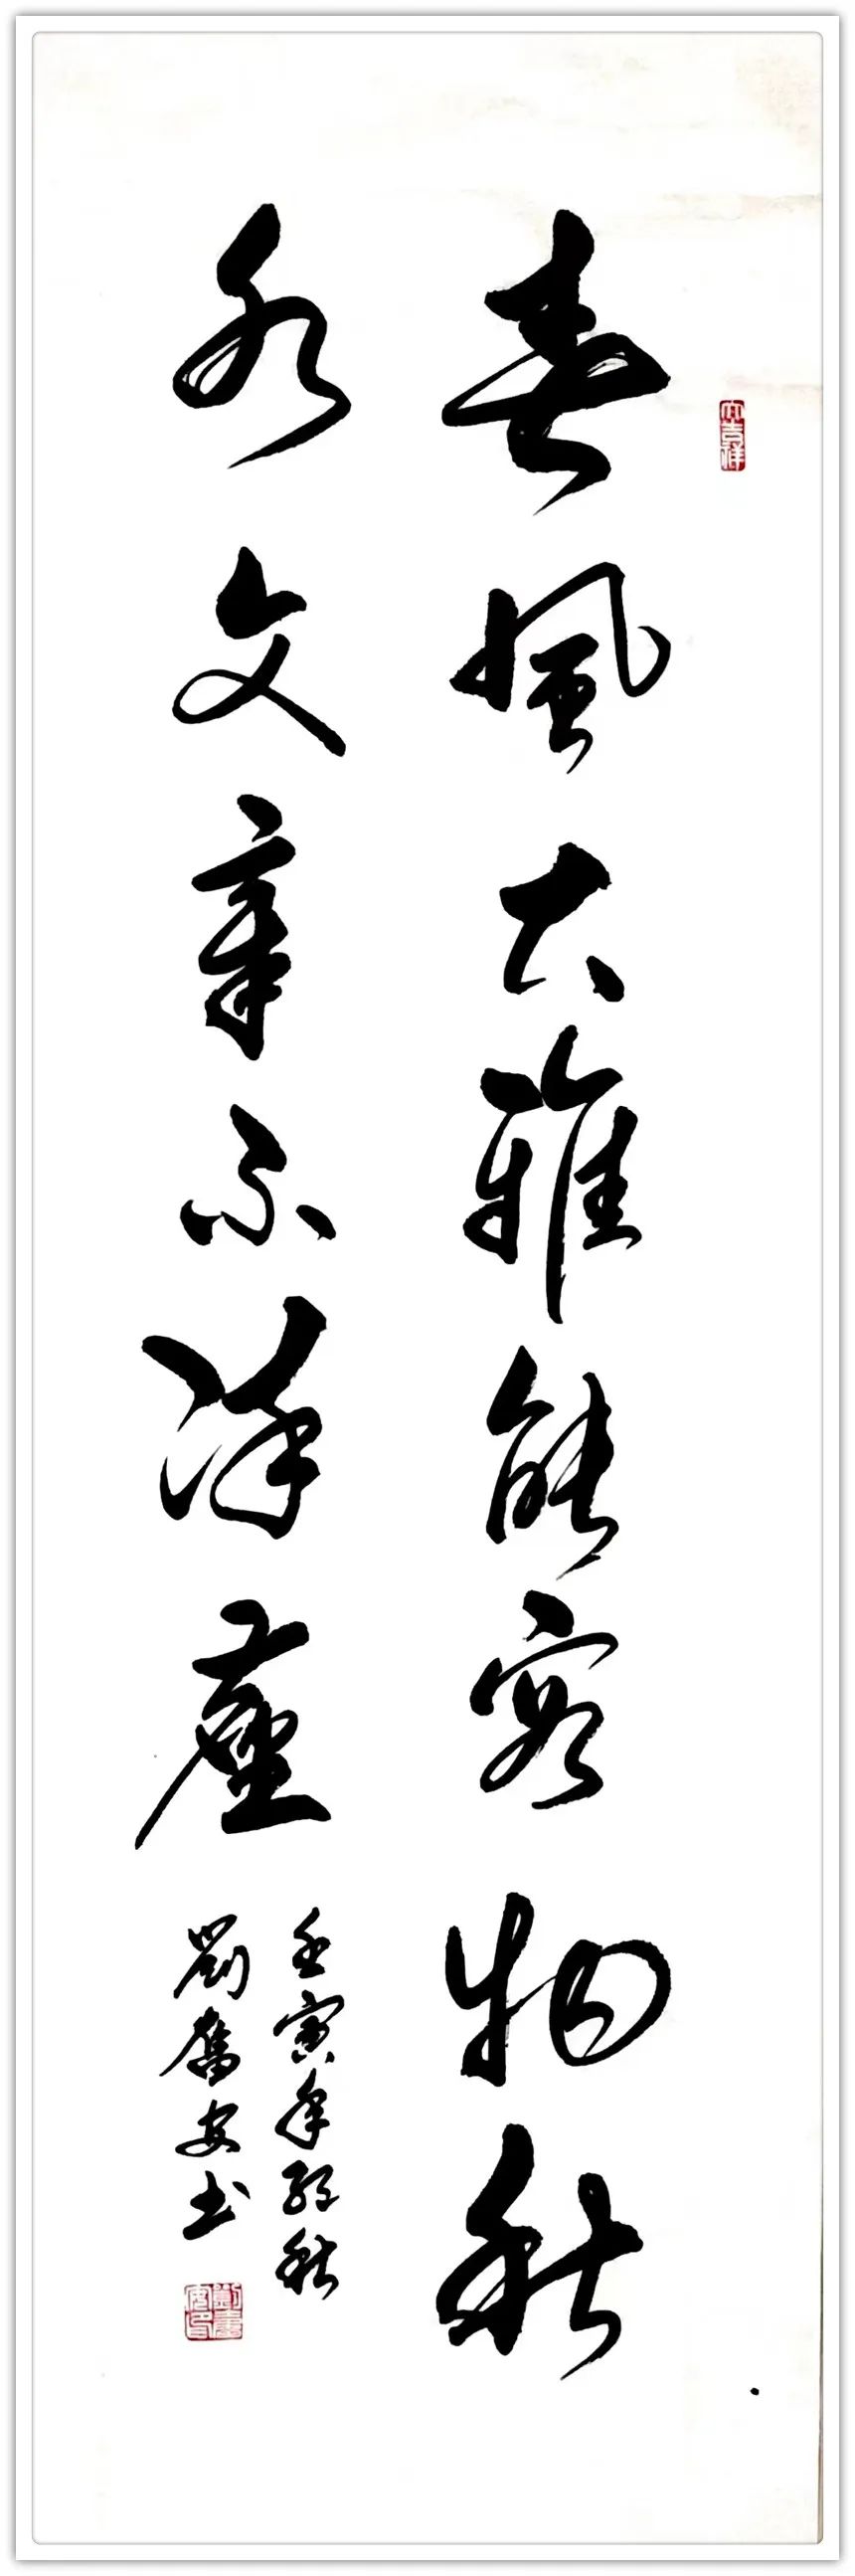 春風大雅能容物秋
水文章不染塵
壬寅年初秋
劉奮安书
大吉祥